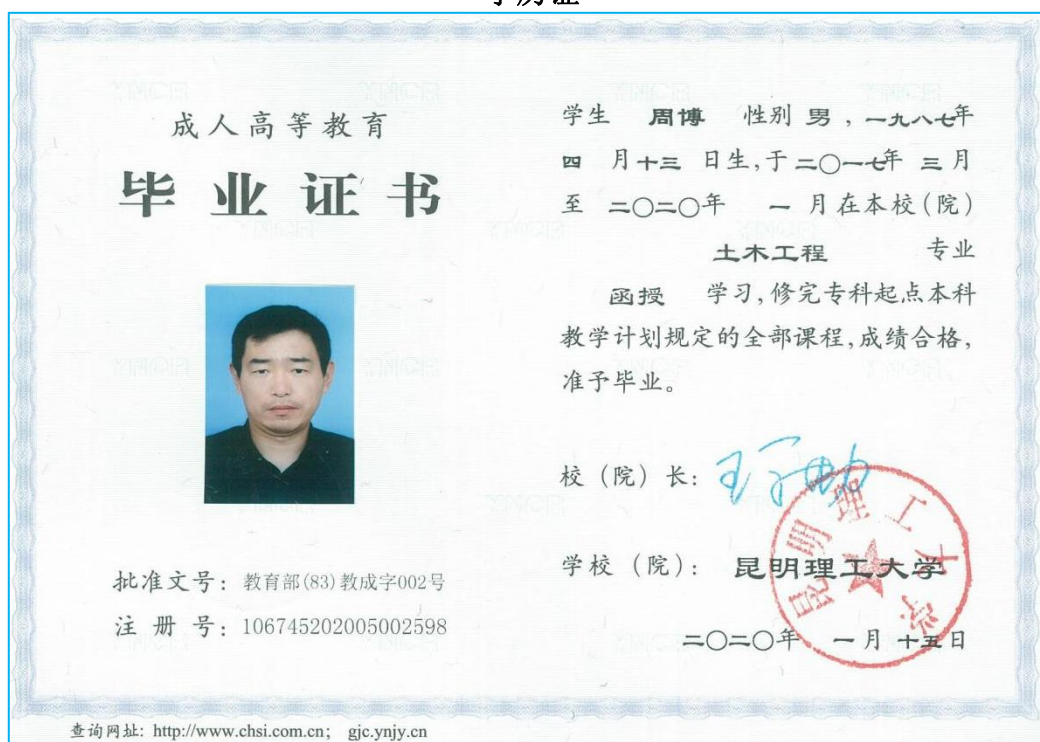 学历证
成人高等教育
毕业证书
批准文号：教育部(83)教成字002号
注册号：106745202005002598
学生 周博 性别 男，一九八七年
四 月十三 日生,于二〇一七年 三月
至 二〇二〇年 一月在本校(院)
土木工程 专业
函授 学习,修完专科起点本科
教学计划规定的全部课程,成绩合格,
准予毕业。
校（院）长：
学校（院）：昆明理工大学
昆明理工大学
二〇二〇年 一月十五日
查询网址: http://www.chsi.com.cn; gjc.ynjy.cn